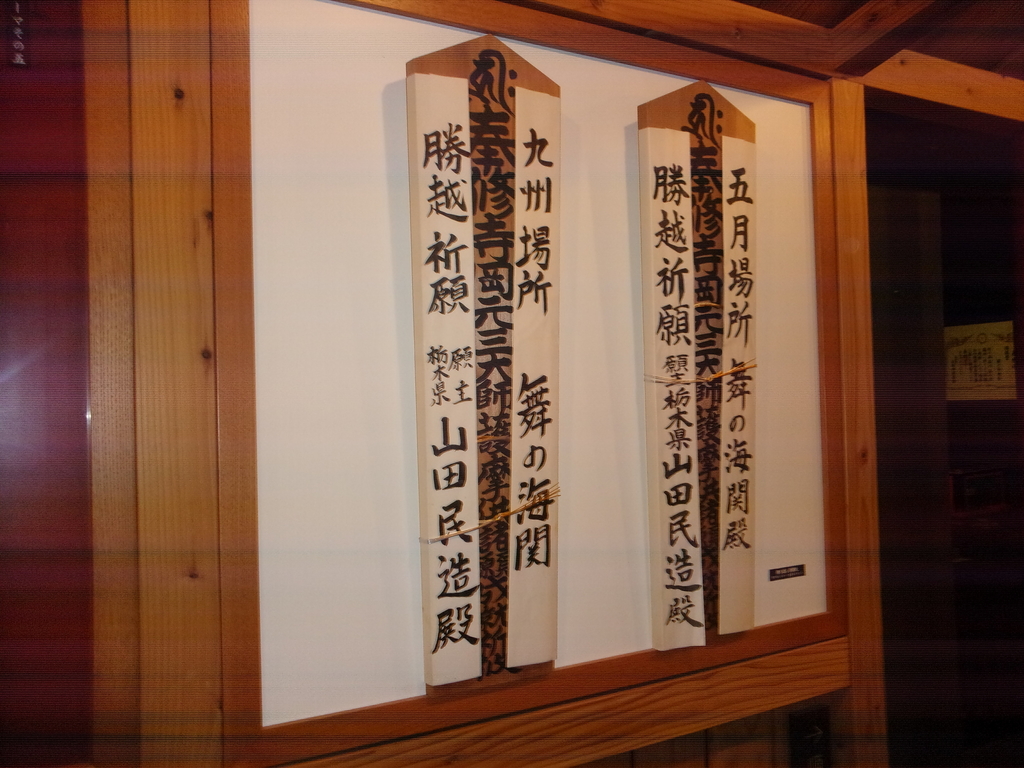 九州場所 舞の海関
奉修寺岡元三大師護摩供
勝越祈願 願主 栃木県 山田民造殿
五月場所 舞の海関殿
奉修寺岡元三大師護摩供
勝越祈願 願主 栃木県 山田民造殿